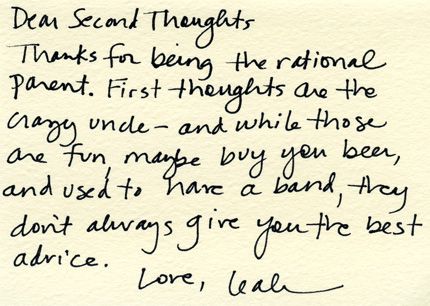 Dear Second Thoughts
Thanks for being the rational
parent. First thoughts are the
crazy uncle – and while those
are fun, maybe buy you beer,
and used to have a band, they
don't always give you the best
advice.
Love, Leah